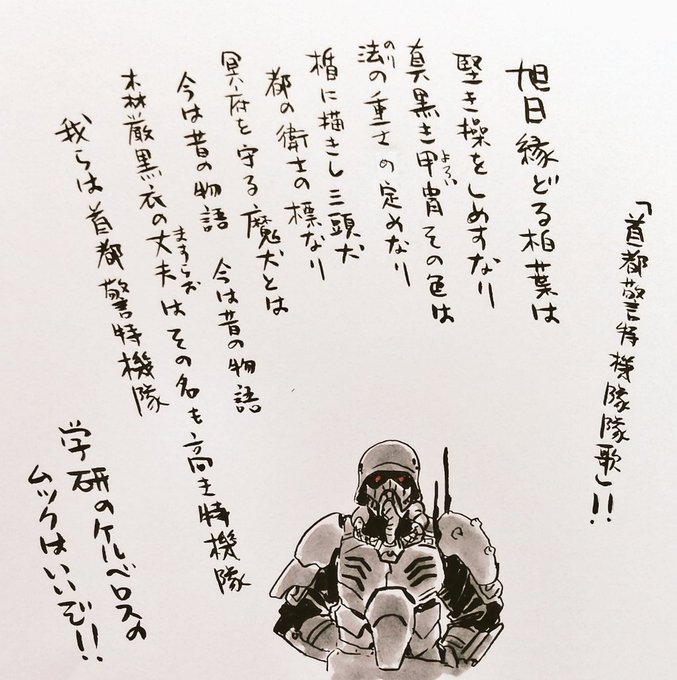 「首都警特機隊隊歌」!!
旭日縁どる柏葉は
堅き操をしめすなり
真黒き甲冑その色は
よろい
法の重さの定めなり
のり
楯に描きし三頭犬
都の衛士の標なり
冥府を守る魔犬とは
今は昔の物語 今は昔の物語
森厳黒衣の丈夫はその名も高き特機隊
ますらお
我らは首都警特機隊
学研のケルベロスの
ムックはいいぞ!!